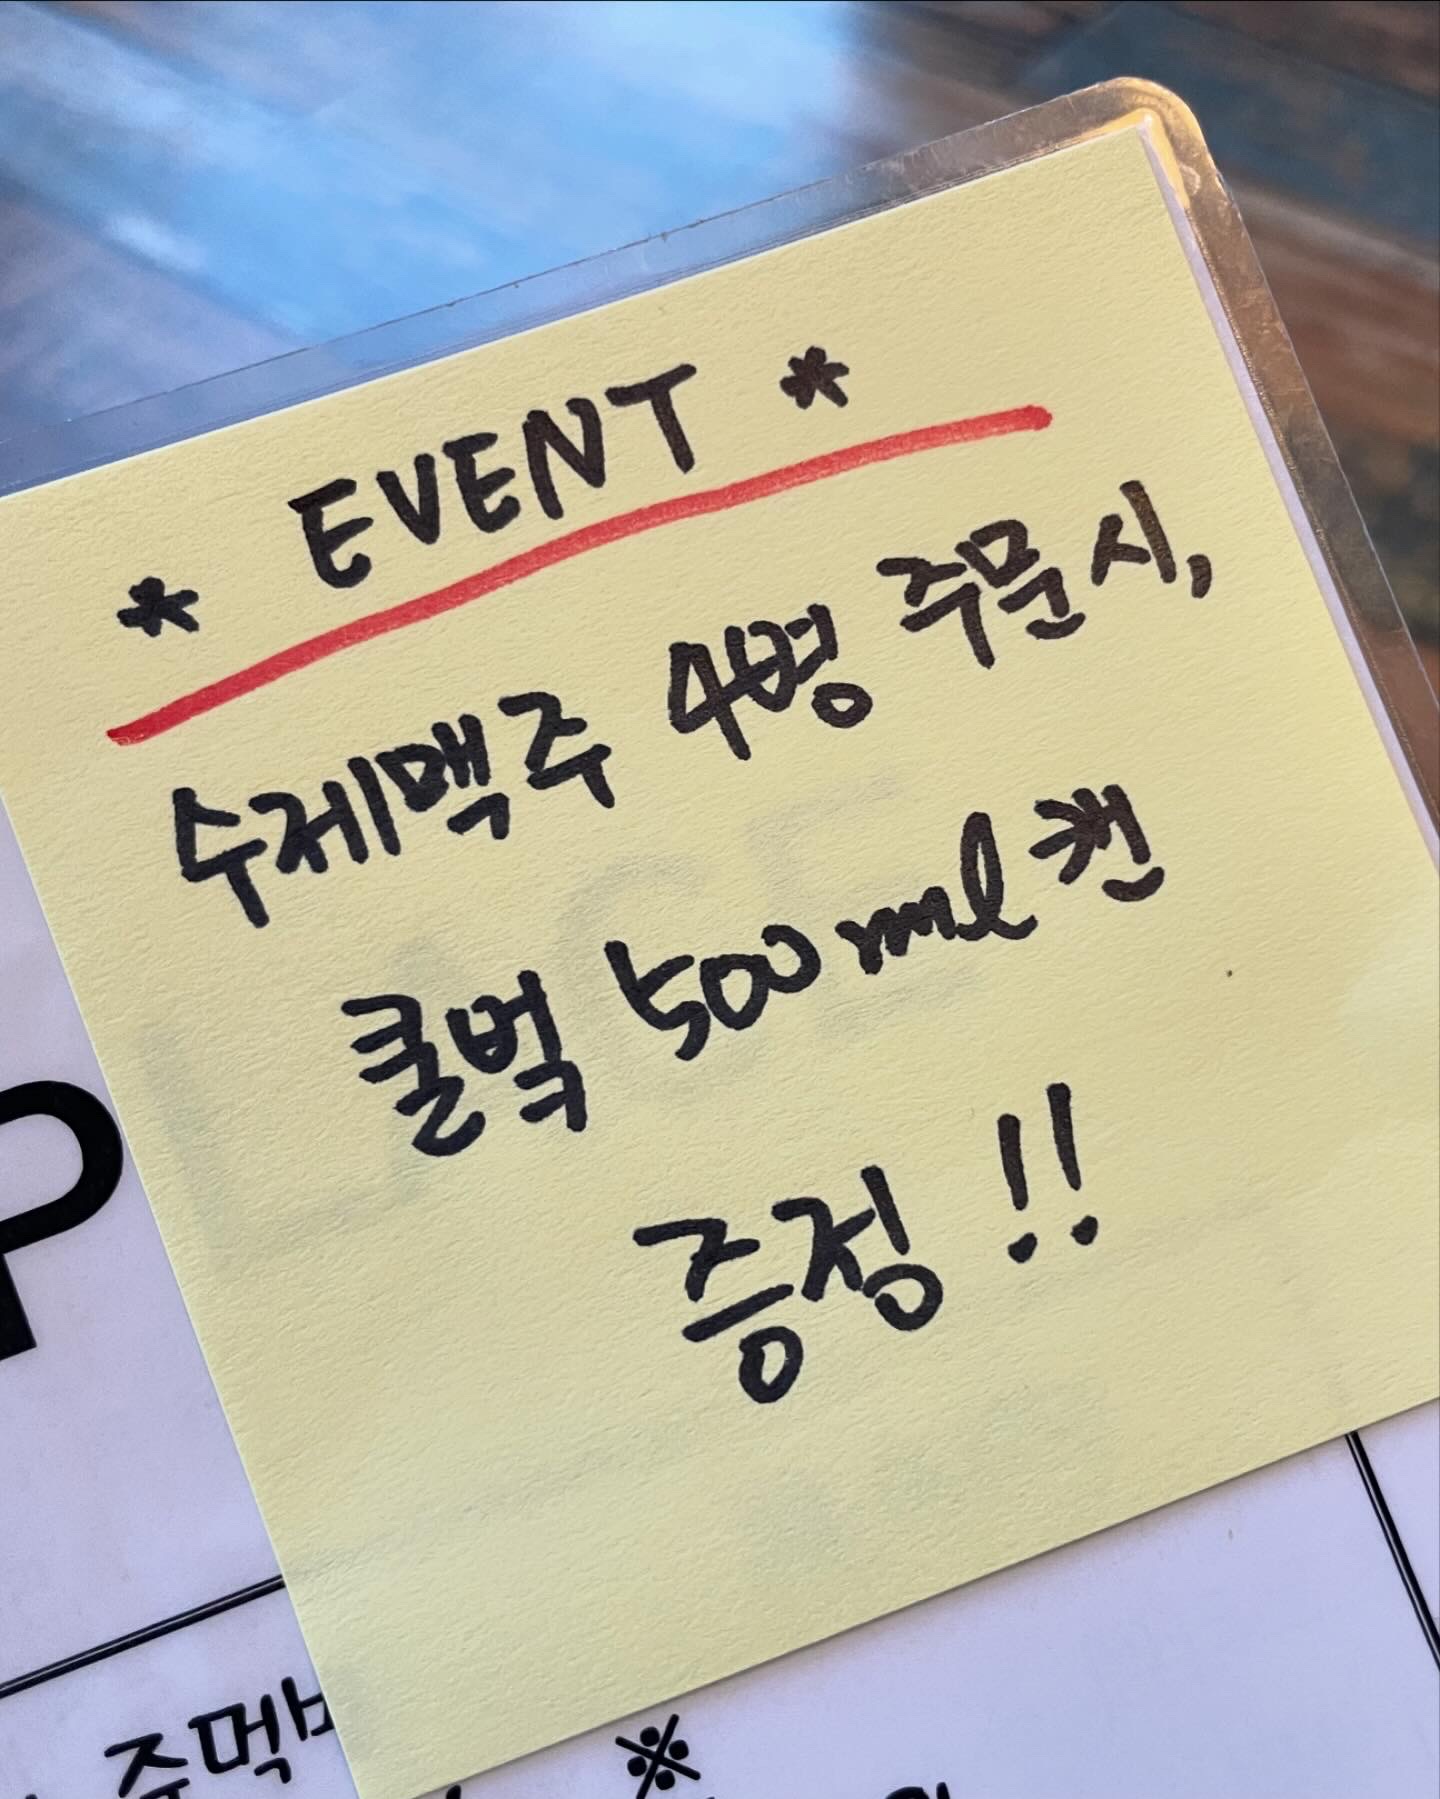 * EVENT *
수제맥주 4병 주문시,
쿨벅 500ml 캔
증정!!
P
주먹
※